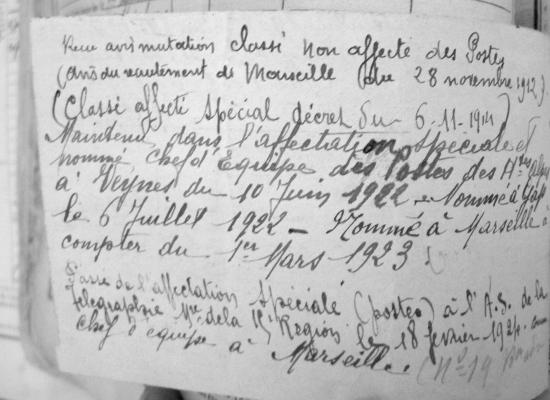 Reçu avis mutation classé Non affecté des Postes
(avis du recrutement de Marseille du 28 novembre 1912)
(Classé affecté Spécial décret du 6-11-1914)
Maintenu dans l'affectation spéciale et
nommé Chef d'Equipe des Postes des Htes Alpes
à Veynes du 10 Juin 1922. Nommé à Gap
le 6 Juillet 1922 – Nommé à Marseille à
compter du 1er Mars 1923.
Passé de l'affectation Spéciale (postes) à l'A.S. de la
Télégraphie Mre de la 15e Région le 18 février 1924. comme
Chef d'équipe à Marseille. (No 19